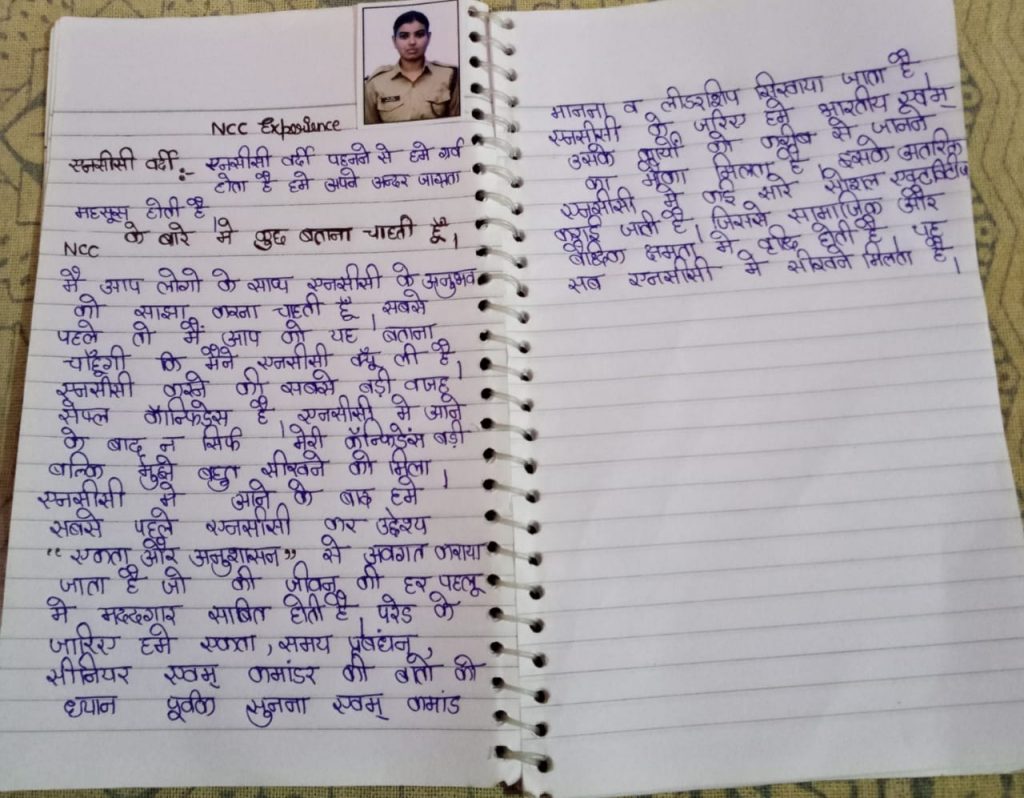 NCC Exposience
एनसीसी वर्दी :- एनसीसी वर्दी पहनने से हमे गर्व
होता है हमे अपने अन्दर
महसूस होती है।
NCC के बारे मे कुछ बताना चाहती हूँ।
मै आप लोगो के साथ एनसीसी के अनुभव
को साझा करना चाहती हूँ। सबसे
पहले तो मैं आप को यह बताना
चाहूँगी कि मैने एनसीसी क्यू ली है।
एनसीसी करने की सबसे बड़ी वजह
सेफ्ल कॉन्फिडेंस है। एनसीसी मे आने
के बाद न सिर्फ मेरी कॉन्फिडेंस बड़ी
बल्कि मुझे बहुत सीखने को मिला।
एनसीसी मे आने के बाद हमे
सबसे पहले एनसीसी का उद्देश्य
“एकता और अनुशासन” से अवगत कराया
जाता है जो की जीवन की हर पहलू
मे मददगार साबित होती है। परेड के
जारिए हमे एकता, समय प्रबंधन,
सीनियर एवम् कमांडर की बातो को
ध्यान पूर्वक सुनना एवम् कमांड
मानना व लीडरशिप सिखाया जाता है।
एनसीसी के जरिए हमे भारतीय एवम्
उसके कार्यो को करीब से जानने
का मौका मिलता है। इसके अतरिक्त
एनसीसी मे कई सारे सोशल एक्टिविटीज
कराई जाती है। जिससे सामाजिक और
बौद्धिक क्षमता मे वृद्धि होती है। यह
सब एनसीसी मे सीखने मिलता है।